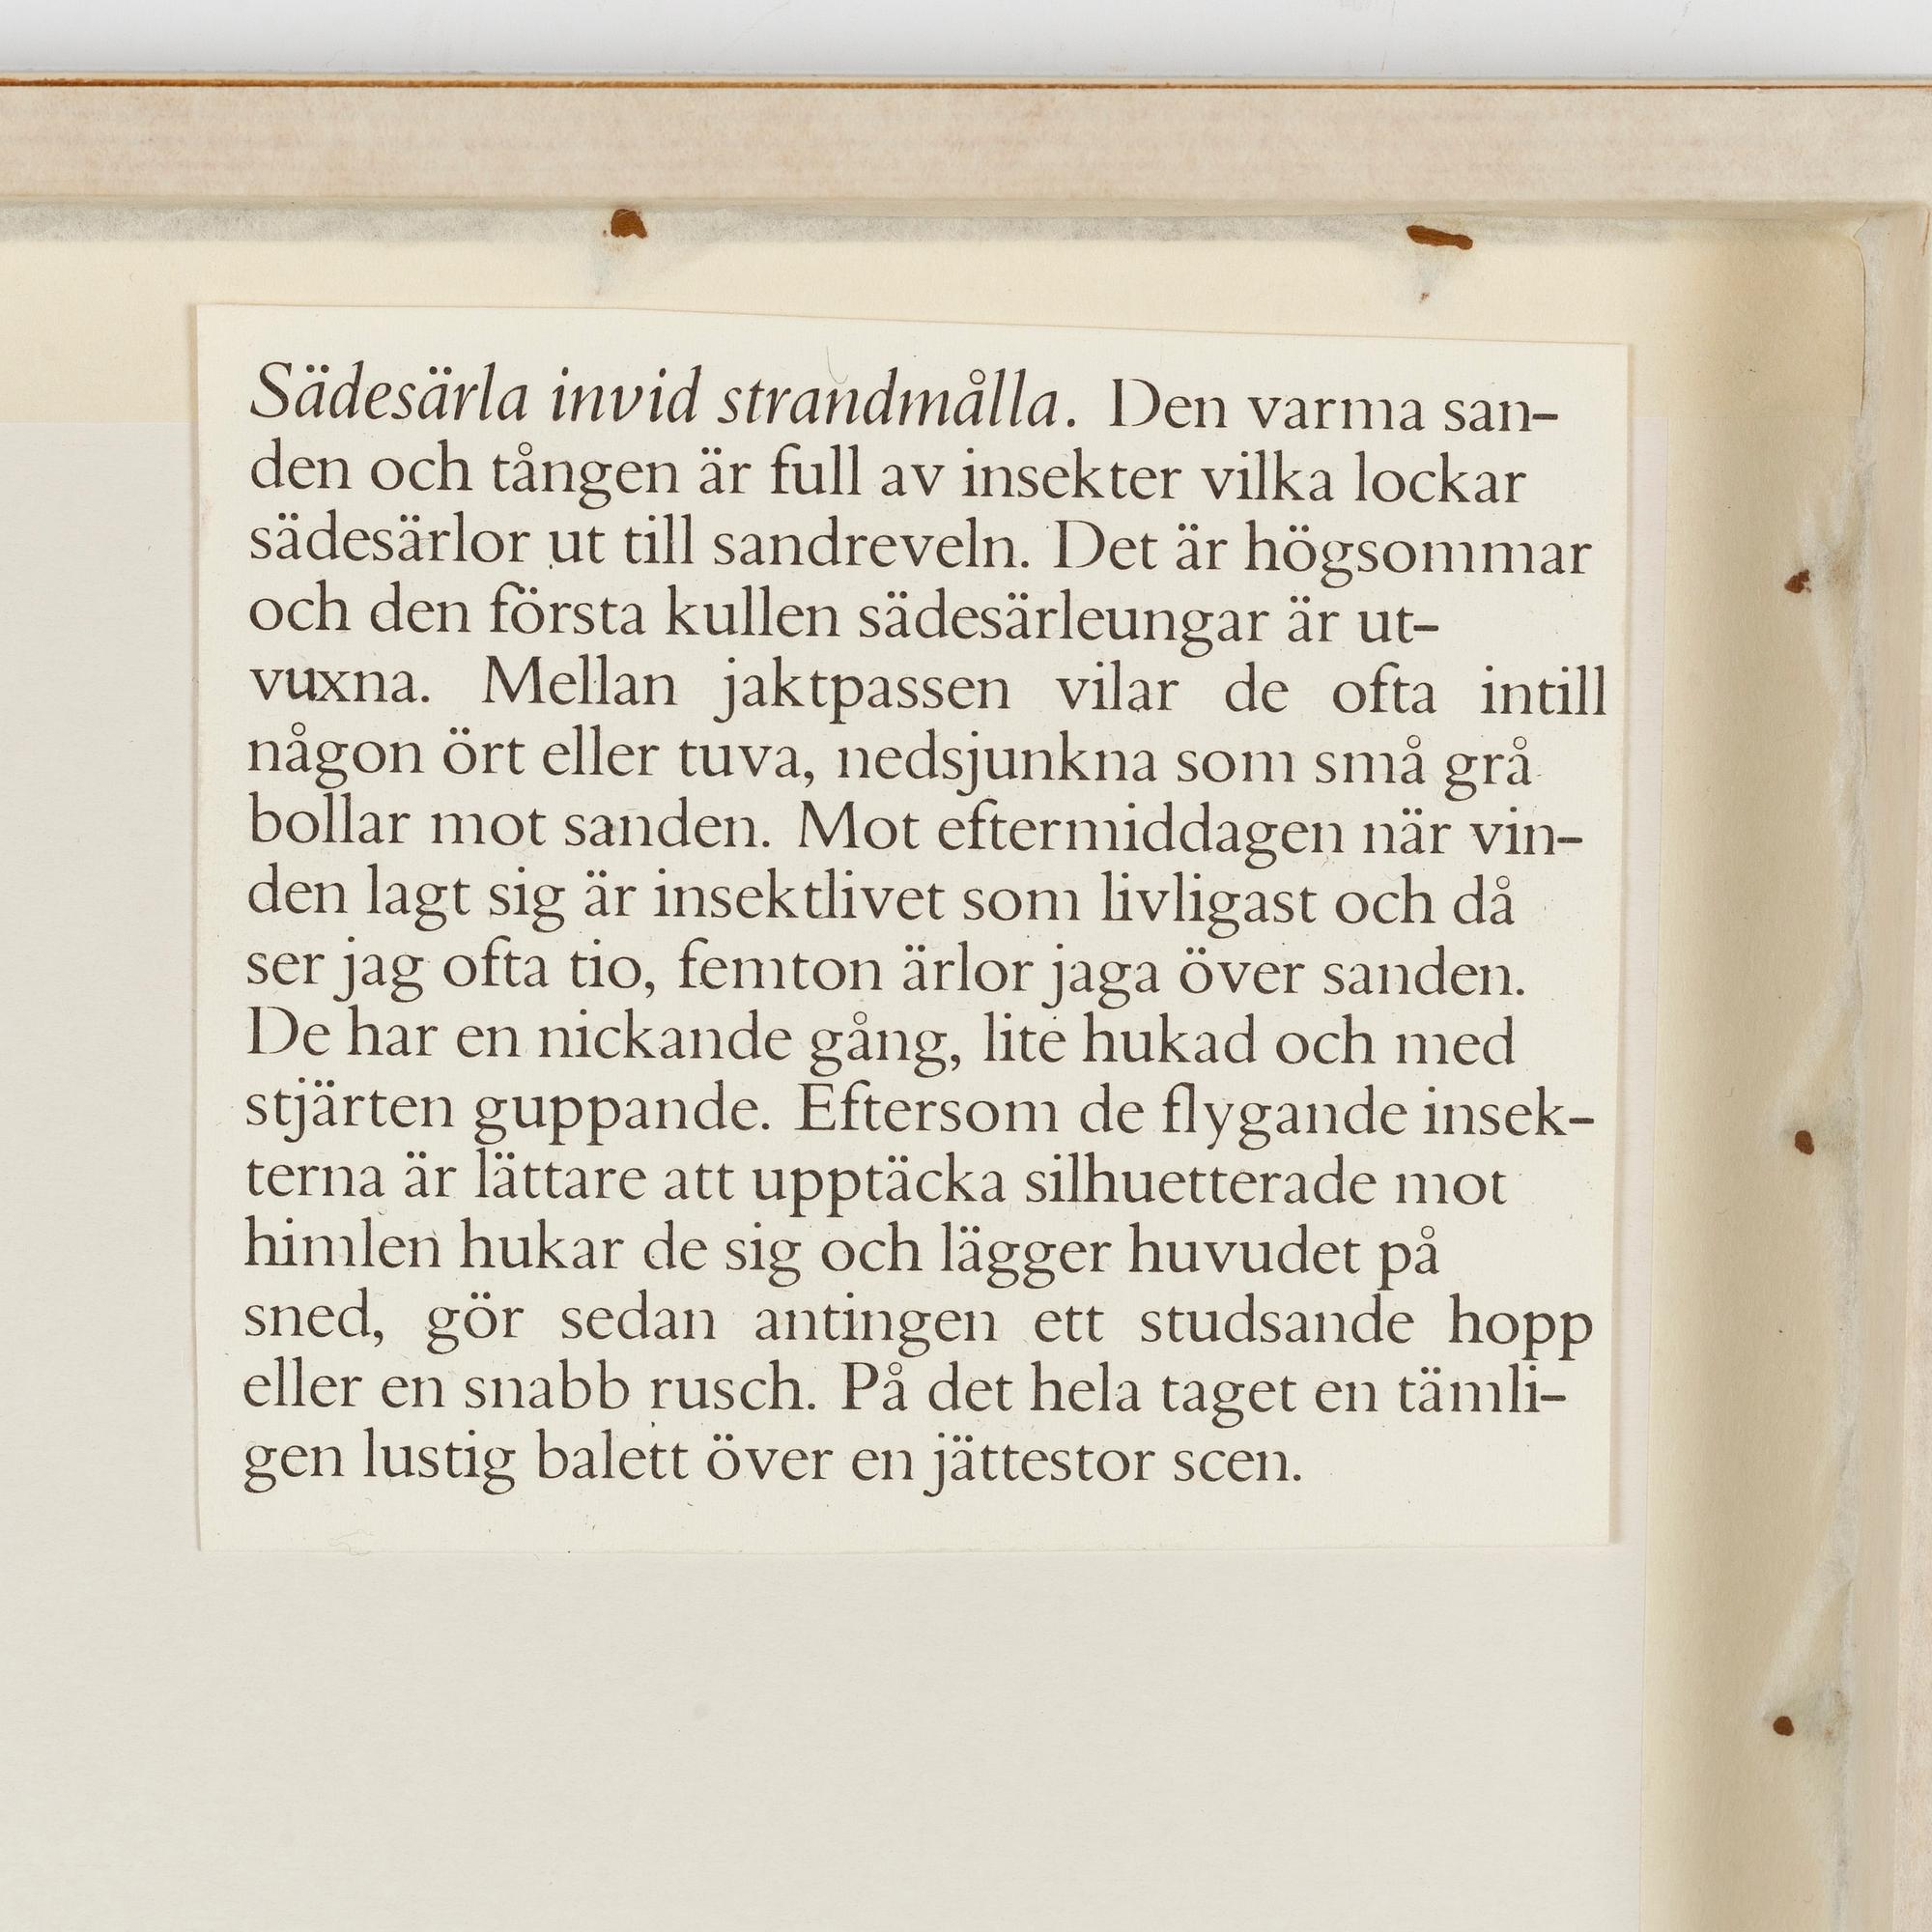 Sädesärla invid strandmålla. Den varma san-
den och tången är full av insekter vilka lockar
sädesärlor ut till sandreveln. Det är högsommar
och den första kullen sädesärleungar är ut-
vuxna. Mellan jaktpassen vilar de ofta intill
någon ört eller tuva, nedsjunkna som små grå
bollar mot sanden. Mot eftermiddagen när vin-
den lagt sig är insektlivet som livligast och då
ser jag ofta tio, femton ärlor jaga över sanden.
De har en nickande gång, lite hukad och med
stjärten guppande. Eftersom de flygande insek-
terna är lättare att upptäcka silhuetterade mot
himlen hukar de sig och lägger huvudet på
sned, gör sedan antingen ett studsande hopp
eller en snabb rusch. På det hela taget en tämli-
gen lustig balett över en jättestor scen.